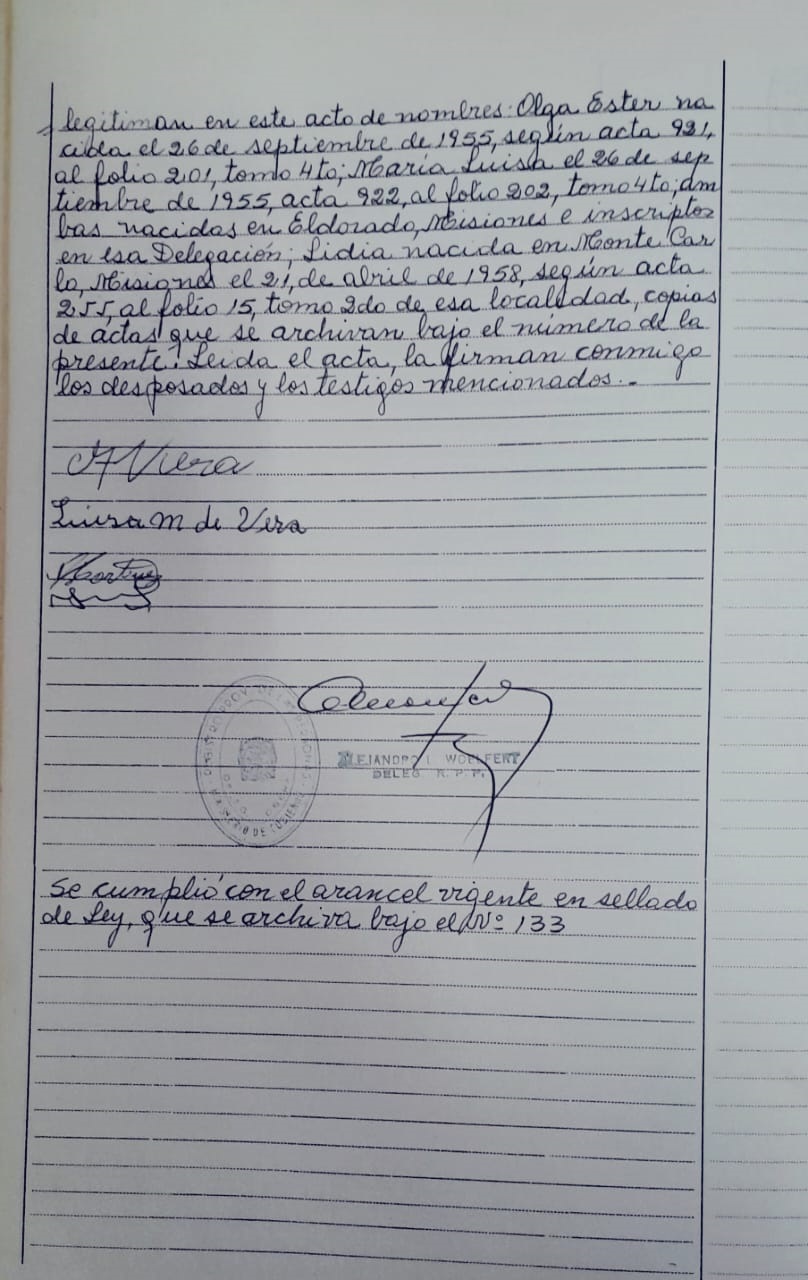 legitiman en este acto de nombres: Olga Ester na
cida el 26 de septiembre de 1955, según acta 921,
al folio 201, tomo 4to; María Luisa el 26 de sep
tiembre de 1955, acta 922, al folio 202, tomo 4to; am
bas nacidas en Eldorado, Misiones e inscriptos
en esa Delegación; Lidia nacida en Monte Car
lo, Misiones el 21, de abril de 1958, según acta
255, al folio 15, tomo 2do de esa localidad, copias
de actas que se archivan bajo el número de la
presente. Leida el acta, la firman conmigo
los desposados y los testigos mencionados.-
Vera
Luisa M de Vera
ALEJANDRO L. WOELFERT
DELEG. R. P. P.
Se cumplió con el arancel vigente en sellado
de Ley, que se archiva bajo el Nº 133